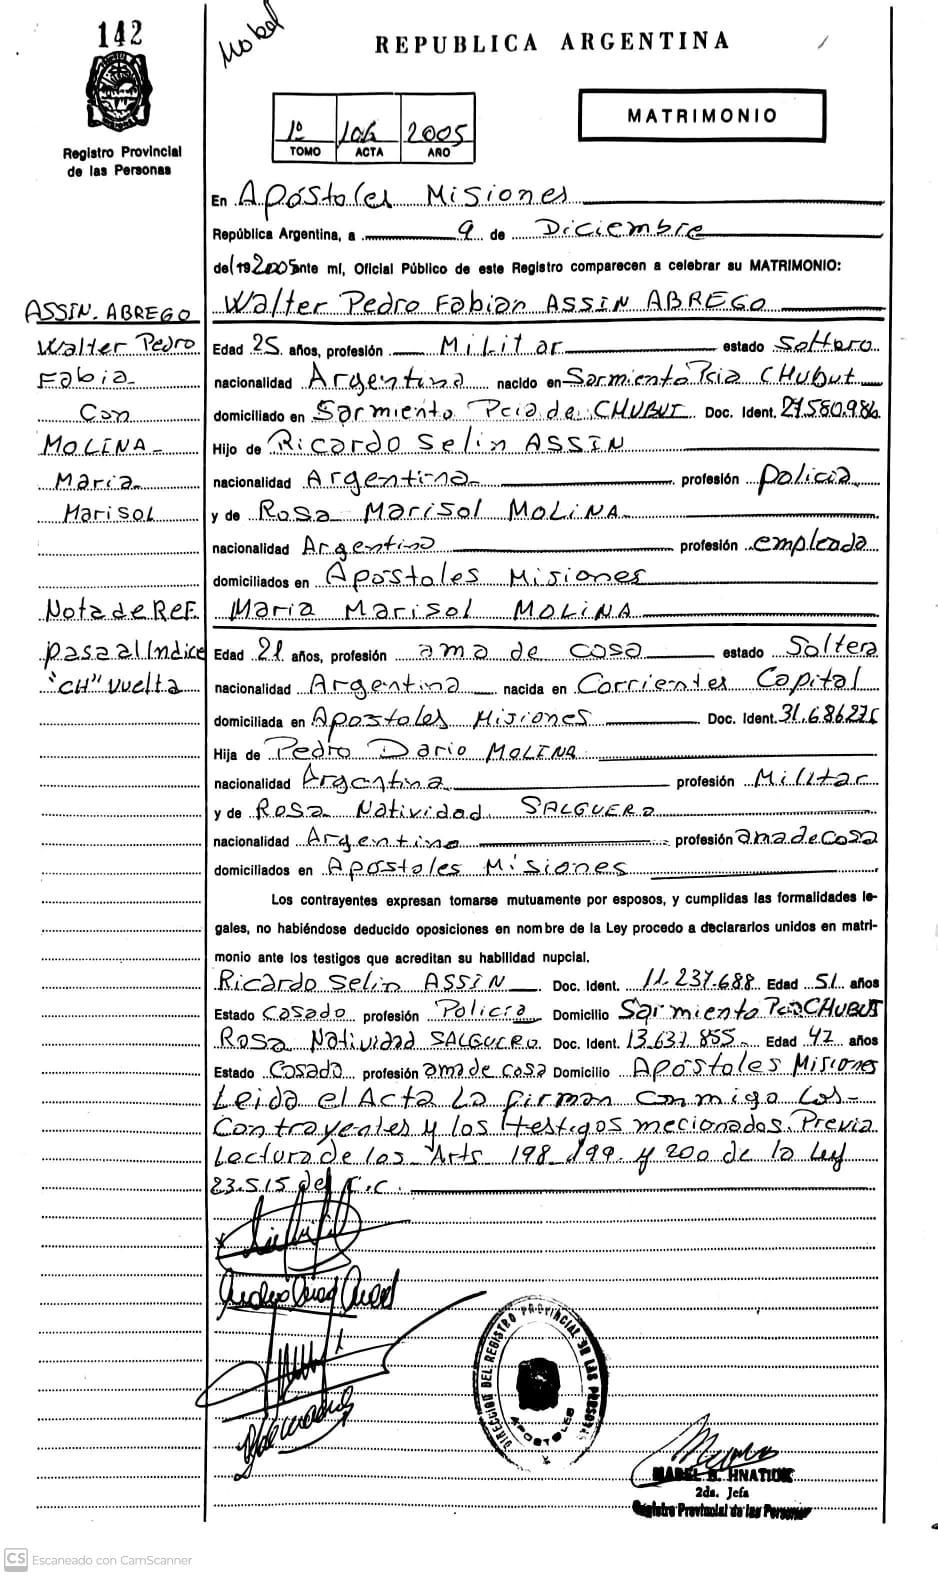 142
Mabel
REPUBLICA ARGENTINA
Registro Provincial
de las Personas
1º 106 2005
TOMO ACTA AÑO
MATRIMONIO
En Apóstoles Misiones
República Argentina, a 9 de Diciembre
del 192005 ante mí, Oficial Público de este Registro comparecen a celebrar su MATRIMONIO:
Walter Pedro Fabian ASSIN ABREGO
Edad 25 años, profesión Militar estado Soltero
nacionalidad Argentina nacido en Sarmiento Pcia CHUbut
domiciliado en Sarmiento Pcia de CHUBUT Doc. Ident. 27.580.986
Hijo de Ricardo Selin ASSIN
nacionalidad Argentina profesión Policia
y de Rosa Marisol MOLINA
nacionalidad Argentina profesión empleada
domiciliados en Apostoles Misiones
Maria Marisol MOLINA
Edad 21 años, profesión ama de casa estado Soltera
nacionalidad Argentina nacida en Corrientes Capital
domiciliada en Apostoles Misiones Doc. Ident. 31.686.276
Hija de Pedro Dario MOLINA
nacionalidad Argentina profesión Militar
y de Rosa Natividad SALGUERO
nacionalidad Argentina profesión ama de casa
domiciliados en Apostoles Misiones
Los contrayentes expresan tomarse mutuamente por esposos, y cumplidas las formalidades le-
gales, no habiéndose deducido oposiciones en nombre de la Ley procedo a declararlos unidos en matri-
monio ante los testigos que acreditan su habilidad nupcial.
Ricardo Selin ASSIN Doc. Ident. 11.237.688 Edad 51 años
Estado Casado profesión Policia Domicilio Sarmiento Pcia CHUBUT
Rosa Natividad SALGUERO Doc. Ident. 13.637.855 Edad 47 años
Estado Casada profesión ama de casa Domicilio Apostoles Misiones
Leida el Acta La firman conmigo Los
Contrayentes y los testigos mecionados. Previa
Lectura de los Arts 198 199 y 200 de la Ley
23.515 del C.C.
ASSIN. ABREGO
Walter Pedro
Fabia
Con
MOLINA
Maria
Marisol
Nota de Ref.
Pasa al Indice
"CH" Vuelta
DIRECCIÓN DEL REGISTRO PROVINCIAL DE LAS PERSONAS
APOSTOLES
MABEL HNATIUK
2da. Jefa
Registro Provincial de las Personas
CS Escaneado con CamScanner